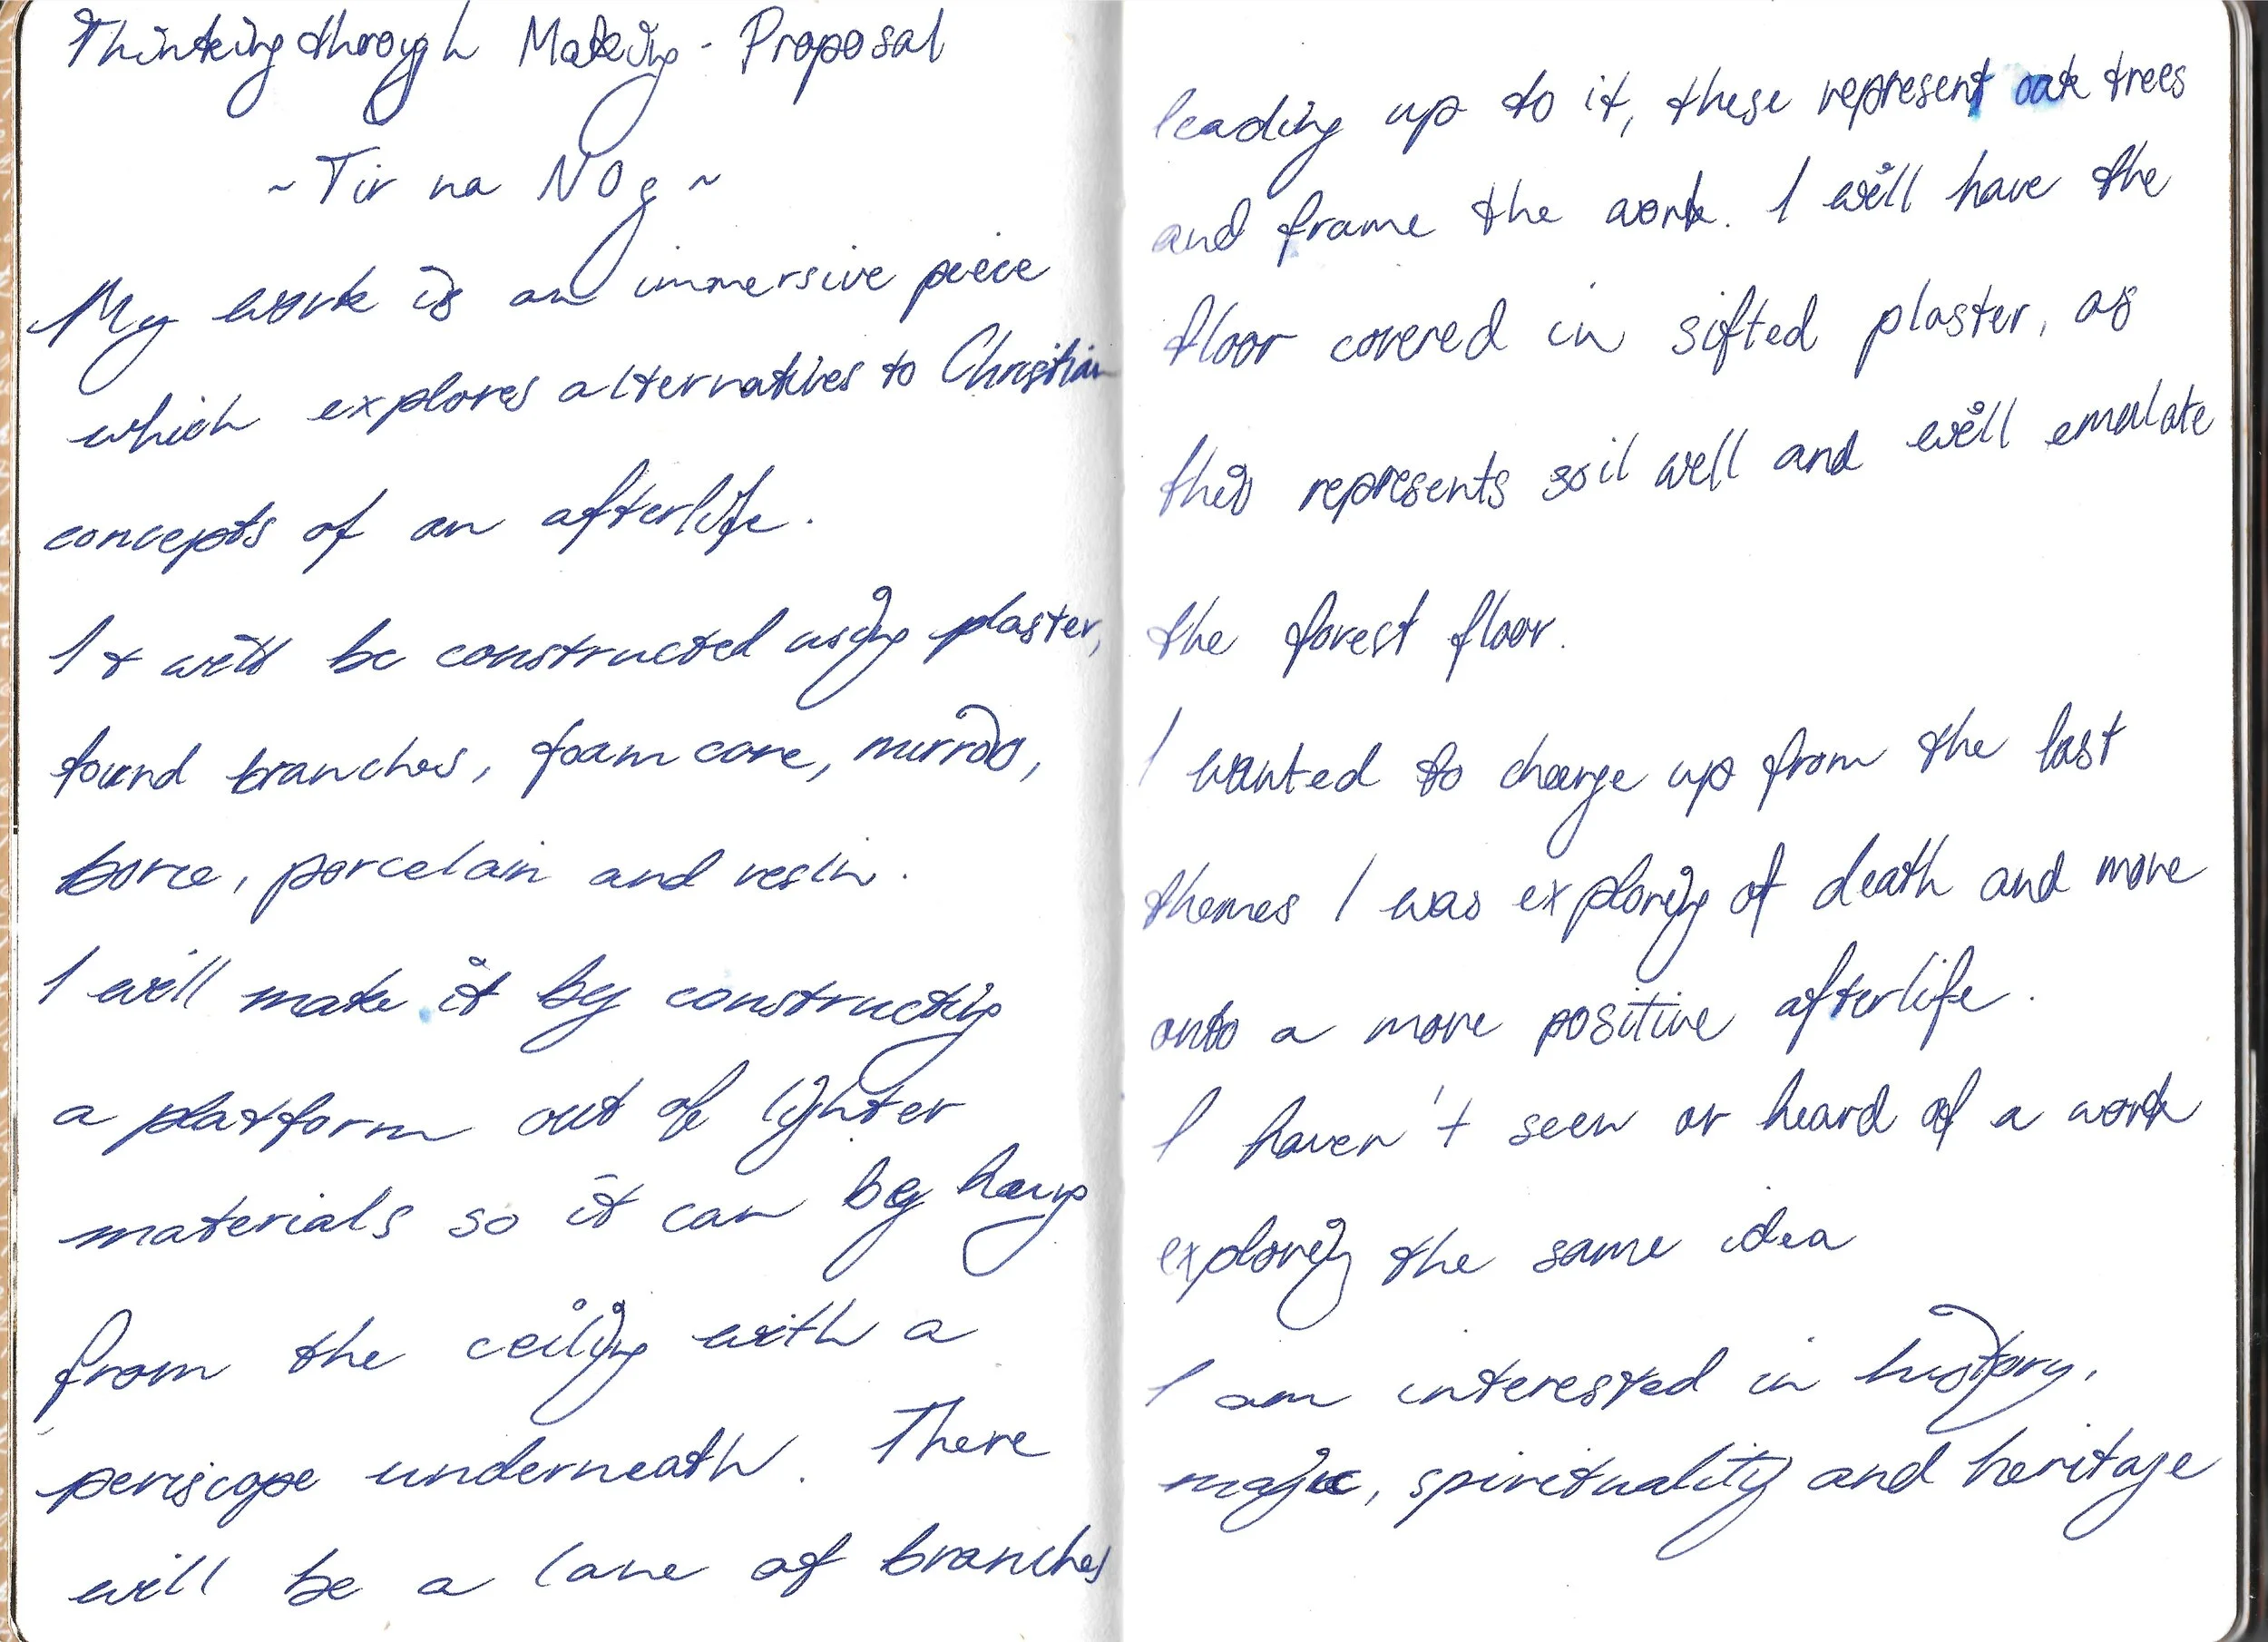 Thinking through Making - Proposal
~ Tir na NOg ~
My work is an immersive piece
which explores alternatives to Christian
concepts of an afterlife.
It will be constructed using plaster,
found branches, foam core, mirrors,
porcelain and resin.
I will make it by constructing
a platform out of lighter
materials so it can be hung
from the ceiling with a
periscope underneath. There
will be a lane of branches
leading up to it, these represent oak trees
and frame the work. I will have the
floor covered in sifted plaster, as
this represents soil well and will emulate
the forest floor.
I wanted to change up from the last
themes I was exploring of death and more
onto a more positive afterlife.
I haven't seen or heard of a work
exploring the same idea
I am interested in history,
magic, spirituality and heritage